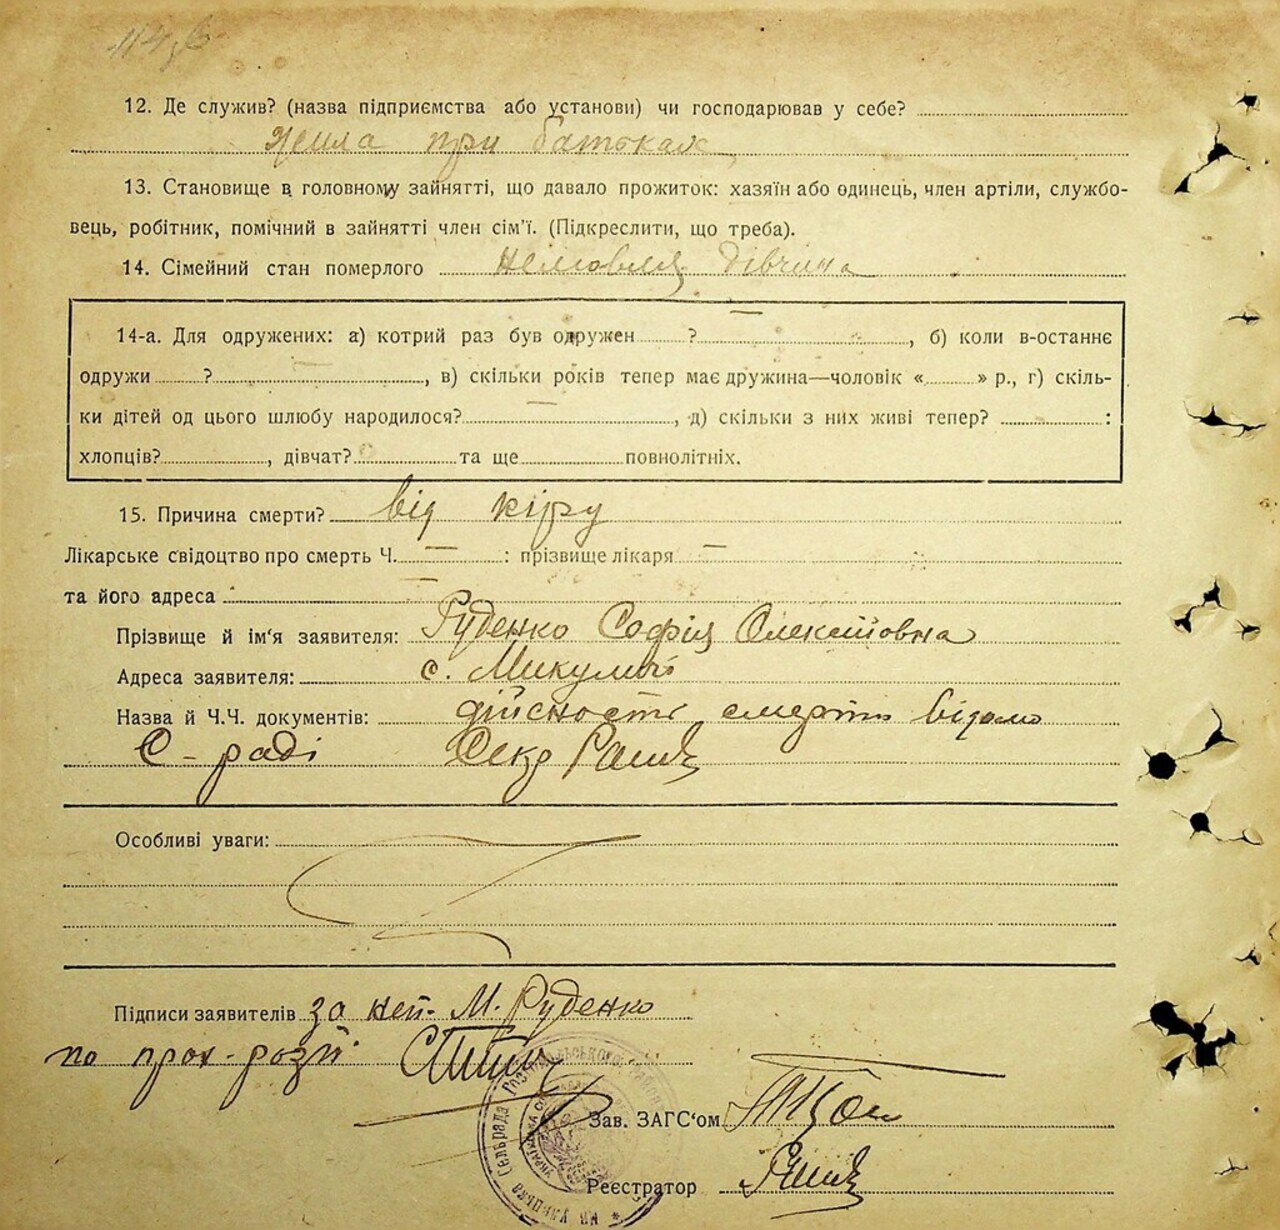 12. Де служив? (назва підприємства або установи) чи господарював у себе?
жила при батьках
13. Становище в головному зайнятті, що давало прожиток: хазяїн або одинець, член артіли, службо-
вець, робітник, помічний в зайнятті член сім'ї. (Підкреслити, що треба).
14. Сімейний стан померлого немовля дівчина
14-а. Для одружених: а) котрий раз був одружен ? , б) коли в-останнє
одружи ? , в) скільки років тепер має дружина—чоловік « » р., г) скіль-
ки дітей од цього шлюбу народилося? , д) скільки з них живі тепер? :
хлопців? , дівчат? та ще повнолітніх.
15. Причина смерти? від кіру
Лікарське свідоцтво про смерть Ч. — : прізвище лікаря —
та його адреса —
Прізвище й ім'я заявителя: Руденко Софія Олексіївна
Адреса заявителя: с.
Назва й Ч.Ч. документів: дійсність смерти відомо
С-раді Секр
Особливі уваги:
Підписи заявителів за неп. М. Руденко
по
Зав. ЗАГС'ом
Реєстратор